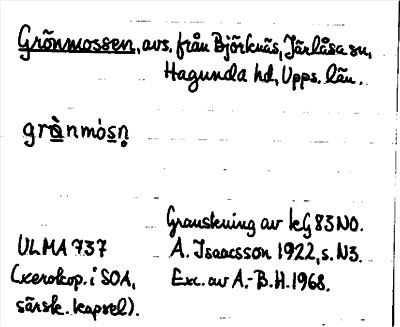 Grönmossen, avs. från Björknäs, Järlåsa sn,
Hagunda hd, Upps. län.
grön̥mòsn̥
Granskning av kG 83NO.
ULMA 737
A. Isaacsson 1922, s. N3.
(xerokop. i SOA,
Exc. av A.-B.H. 1968.
särsk. kapsel).